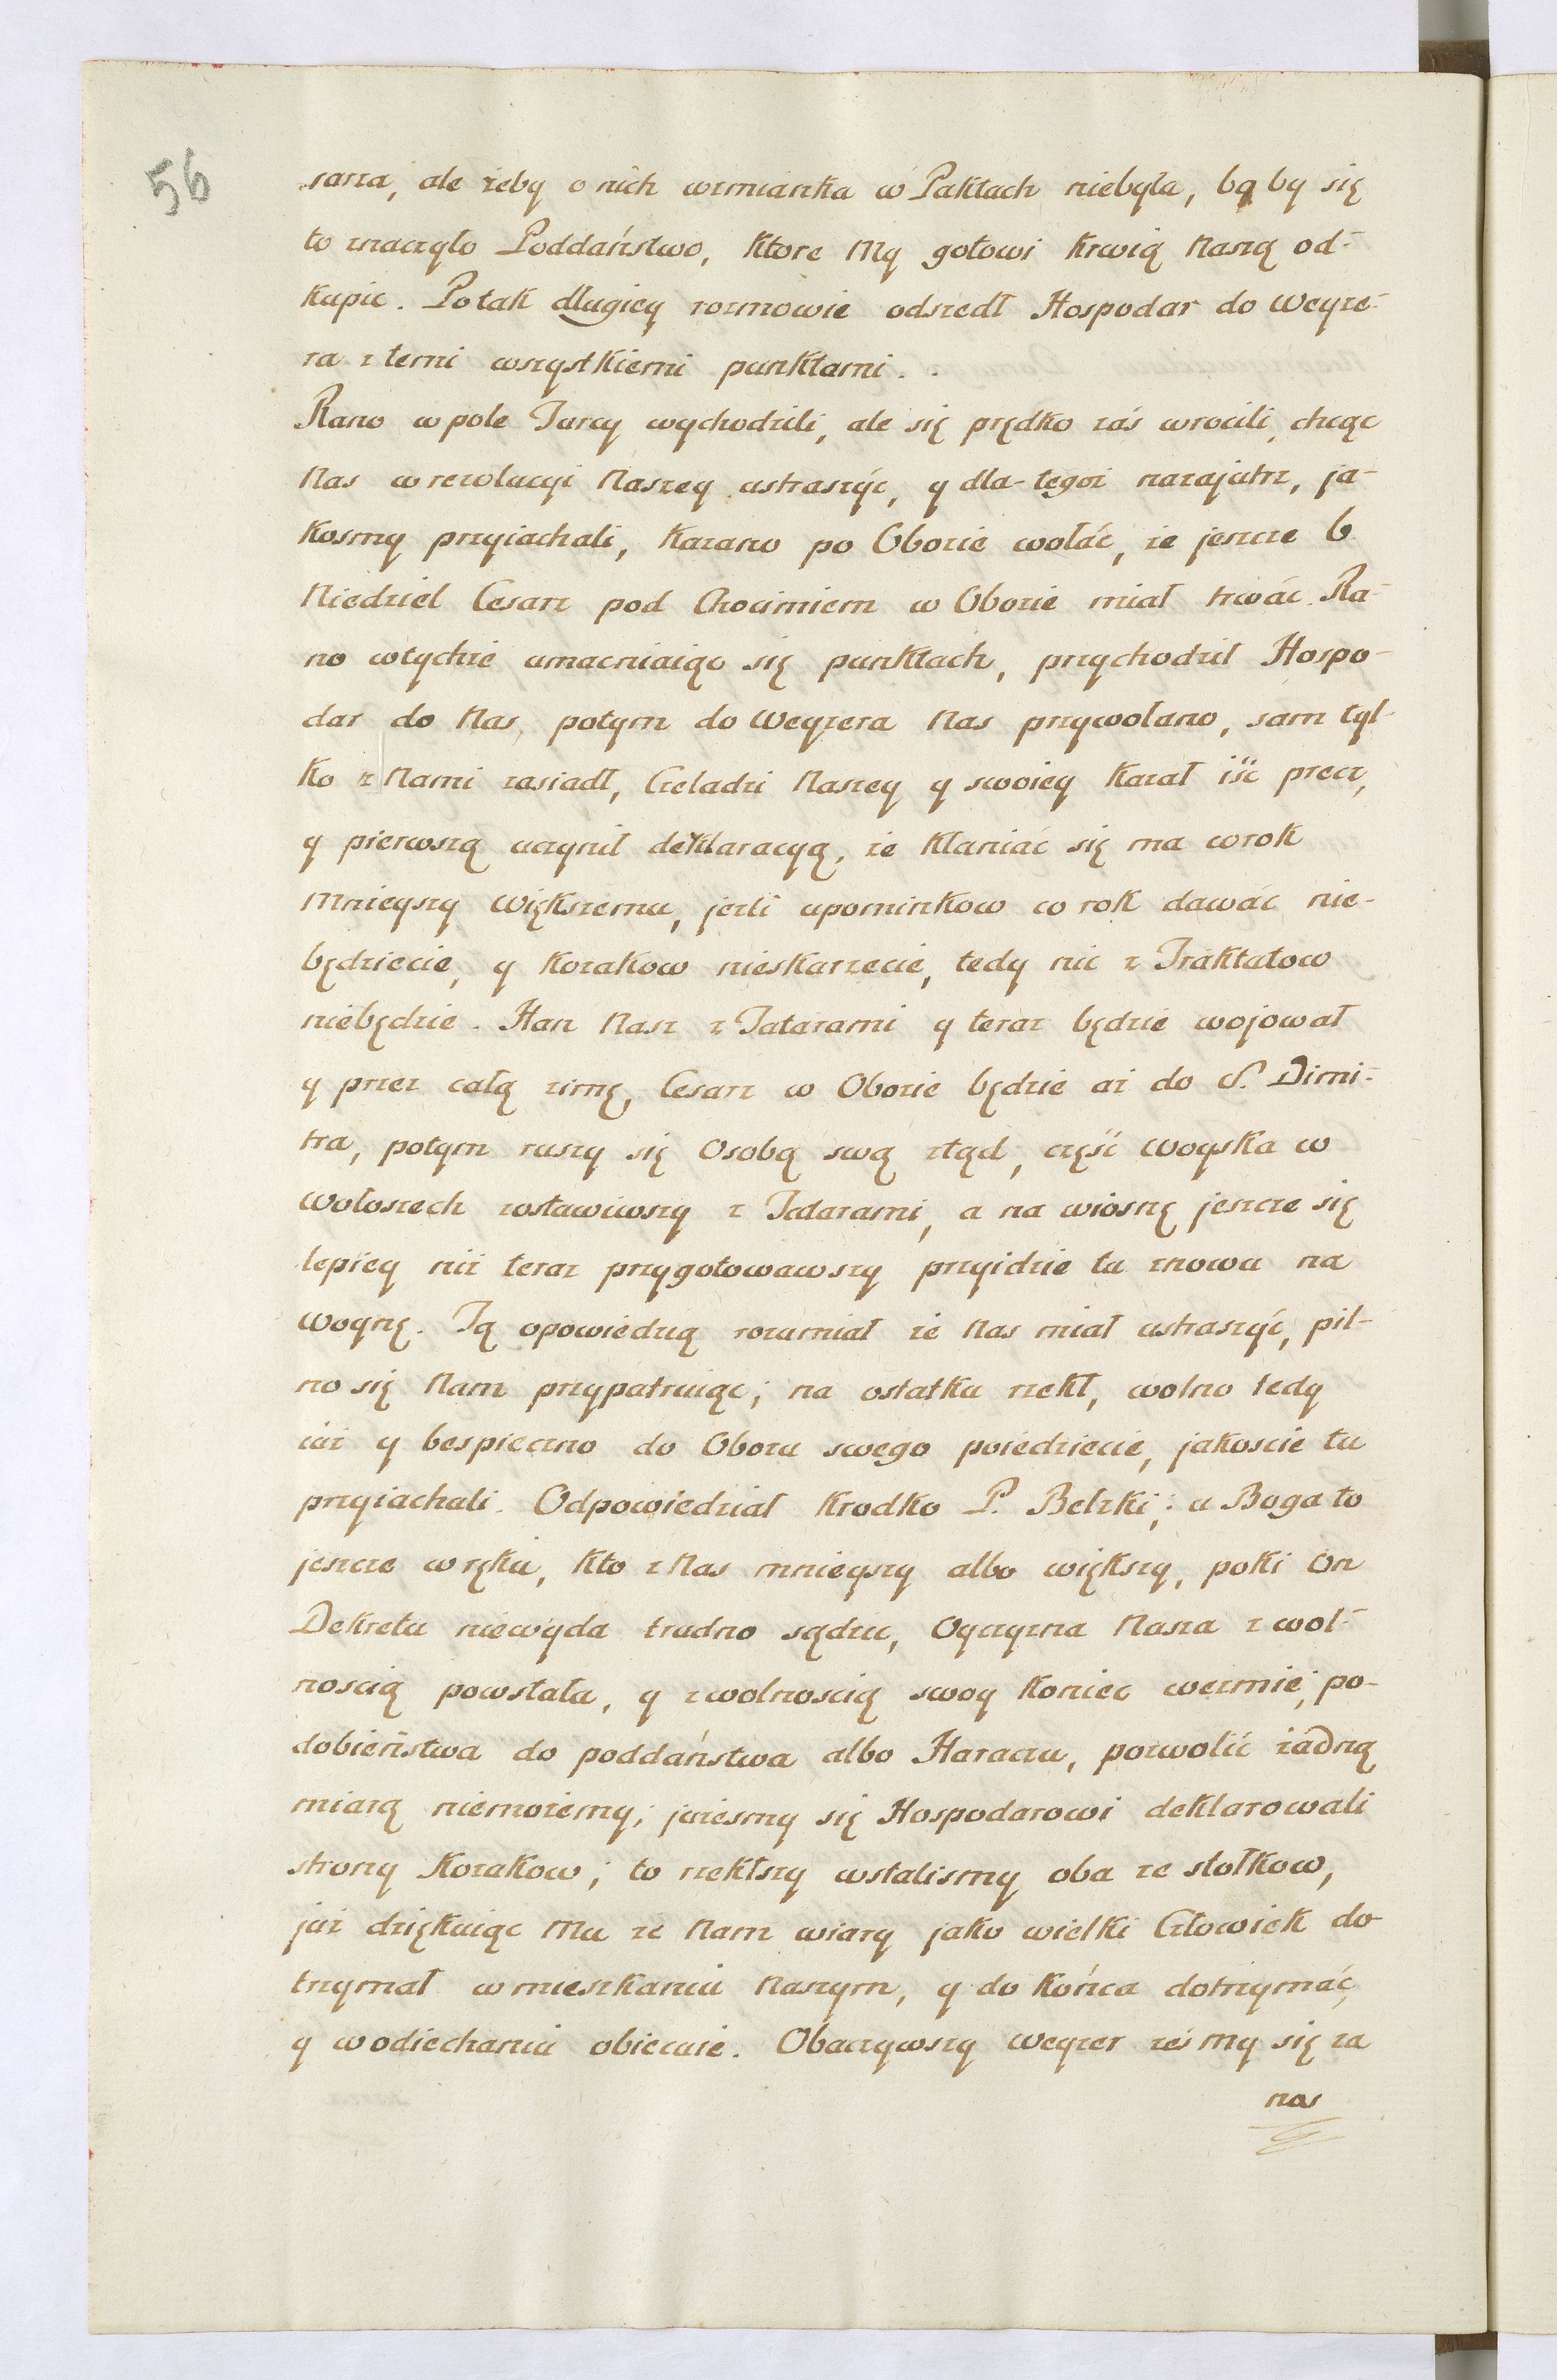 56
sarza, ale żeby o nich wzmianka w Paktach niebyła, bo by się
to znaczyło Poddaństwo, ktore My gotowi krwią Naszą od-
kupic. Po tak długiey rozmowie odszedł Hospodar do Weyze-
ra z temi wszystkiemi punktami.
Rano w pole Turcy wychodzili, ale się prędko záś wrocili, chcąc
Nas w rezolucyi Naszey ustraszýc, y dla-tegoż nazajutrz, ja-
kosmy przyiachali, kazano po Obozie wołáć, że jeszcze 6
Niedziel Cesarz pod Chocimiem w Obozie miał trwáć. Ra-
no wtychże umacniaiąc się punktach, przychodził Hospo-
dar do Nas, potym do Weyzera Nas przywołano, sam tyl-
ko z Nami zasiadł, Czeladzi Naszey y swoiey kazał iśc precz,
y pierwszą uczynił deklaracyą, że kłaniać się ma wrok
Mnieyszy Większemu, jeżli upominkow co rok dawáć nie-
będziecie, y Kozakow nieskarzecie, tedy nic z Traktatow
niebędzie. Han Nasz z Tatarami y teraz będzie wojował
y przez całą zimę, Cesarz w Obozie będzie aż do S. Dimi-
tra, potym ruszy się Osobą swą ztąd, częśc Woyska w
Wołoszech zostawiwszy z Tatarami, a na wiosnę jeszcze się
lepiey niż teraz przygotowawszy przyidzie tu znowu na
Woynę. Tą opowiedzią rozumiał że Nas miał ustraszýć, pil-
no się Nam przypatruiąc; na ostatku rzekł, wolno tedy
iuż y bespieczno do Obozu swego poiedziecie, jakoscie tu
przyiachali. Odpowiedział krodko P. Bełzki; u Boga to
jeszcze w ręku, kto z Nas mnieyszy albo większy, poki On
Dekretu niewyda trudno sądzic, Oyczyzna Nasza z wol-
noscią powstała, y zwolnoscią swoy koniec wezmie; po-
dobieństwa do poddaństwa albo Haraczu, pozwolić żadną
miarą niemożemy; jużesmy się Hospodarowi deklarowali
strony Kozakow; to rzekłszy wstalismy oba ze stołkow,
już dziękuiąc Mu że Nam wiary jako wielki Człowiek do-
trzymał w mieszkaniu Naszym, y do końca dotrzymáć,
y w odiechaniu obiecuie. Obaczywszy Weyzer żeś my się za
nas